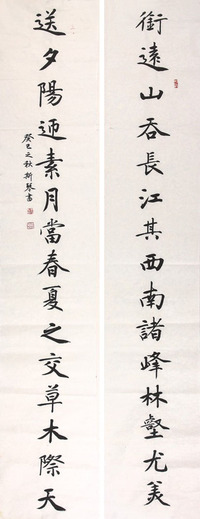 銜遠山吞長江其西南諸峰林壑尤美
送夕陽迎素月當春夏之交草木際天
癸巳之秋斯琴書